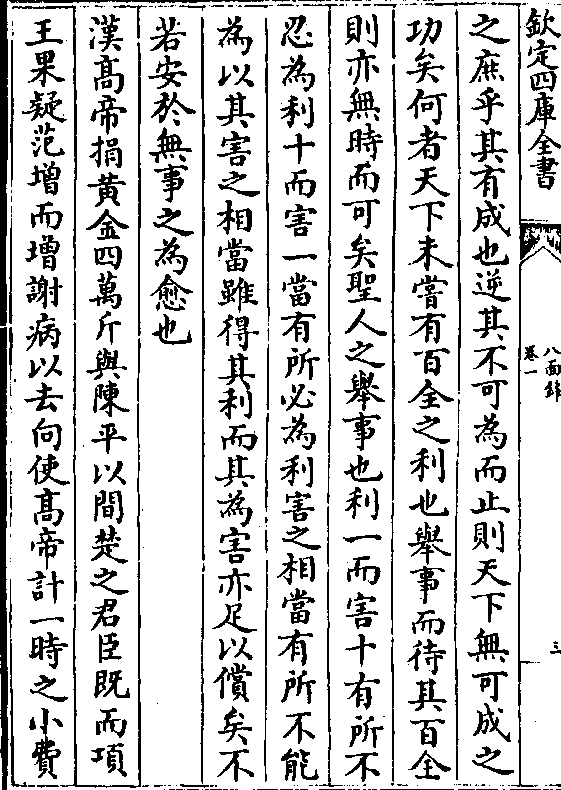 欽定四庫全書
八面鋒
卷一
三
之庶乎其有成也逆其不可為而止則天下無可成之
功矣何者天下未嘗有百全之利也舉事而待其百全
則亦無時而可矣聖人之舉事也利一而害十有所不
忍為利十而害一當有所必為利害之相當有所不能
為以其害之相當雖得其利而其為害亦足以償矣不
若安於無事之為愈也
漢髙帝捐黃金四萬斤與陳平以間楚之君臣既而項
王果疑范增而增謝病以去向使髙帝計一時之小費